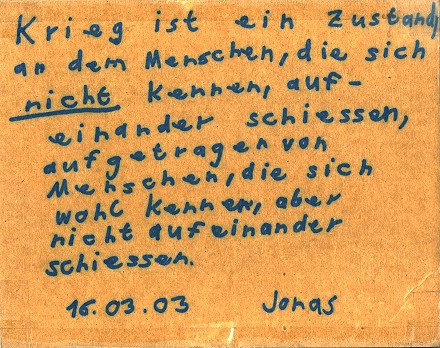 Krieg ist ein Zustand,
an dem Menschen, die sich
nicht kennen, auf-
einander schiessen,
aufgetragen von
Menschen, die sich
wohl kennen, aber
nicht aufeinander
schiessen.
16.03.03 Jonas